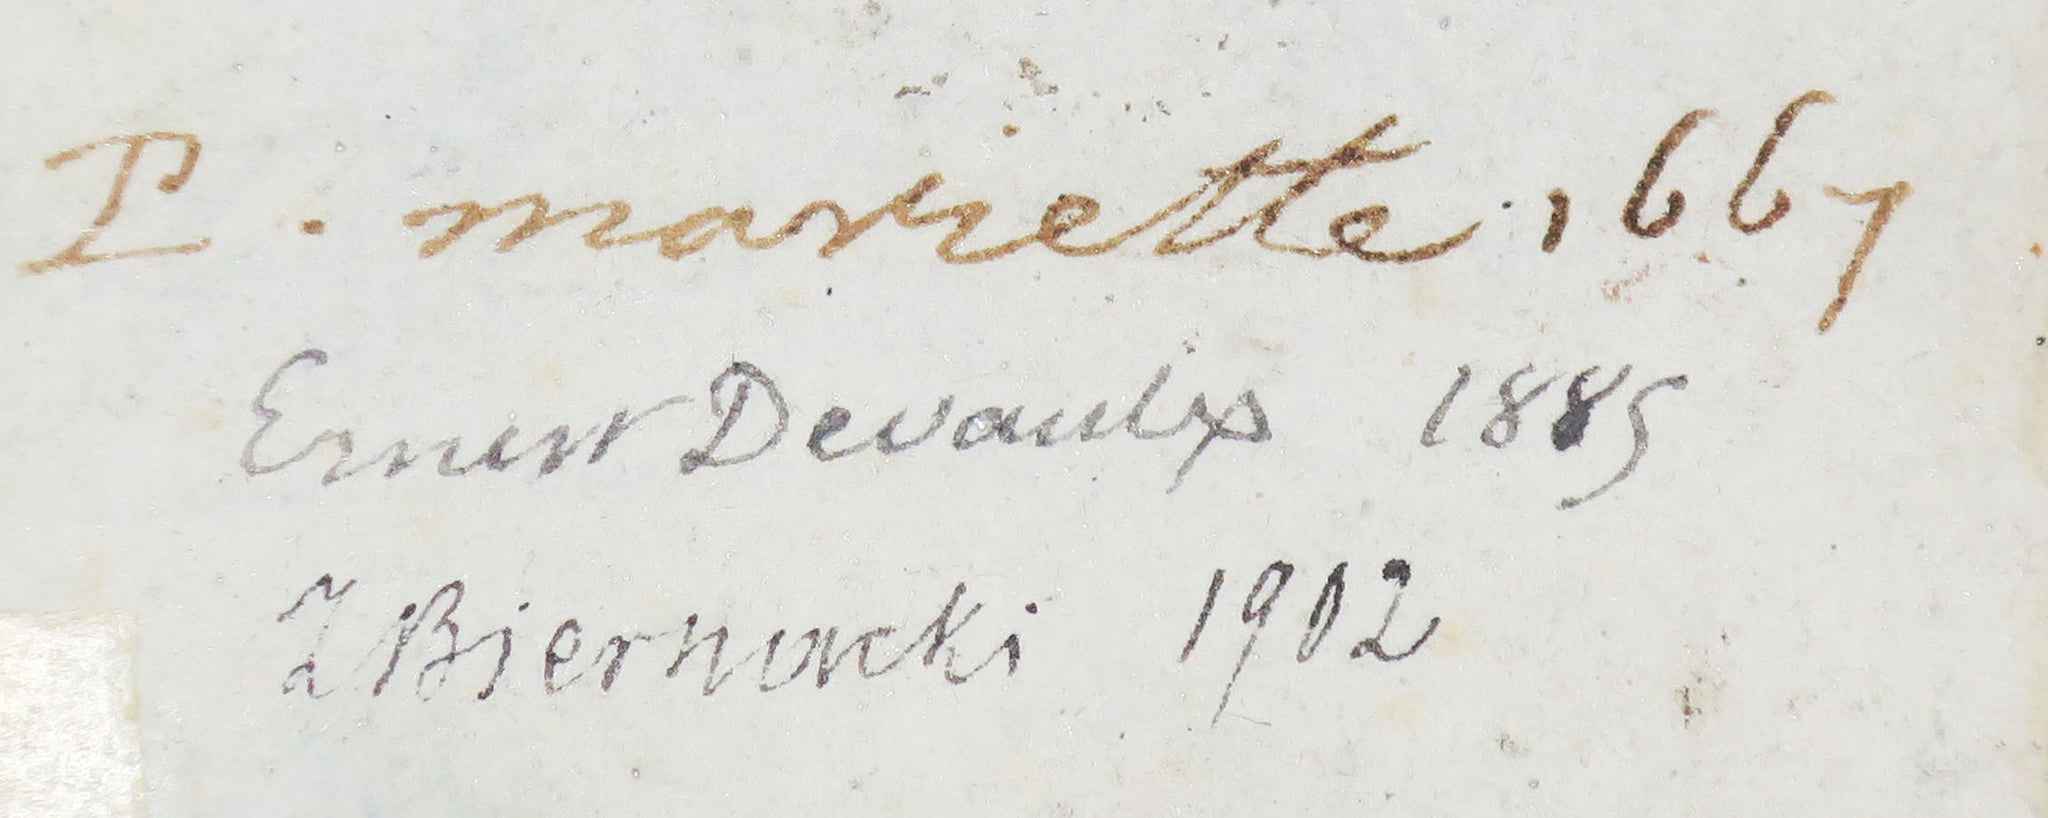 P. mariette. 1667
Ernest Devaulx 1885
Z Biernacki 1902